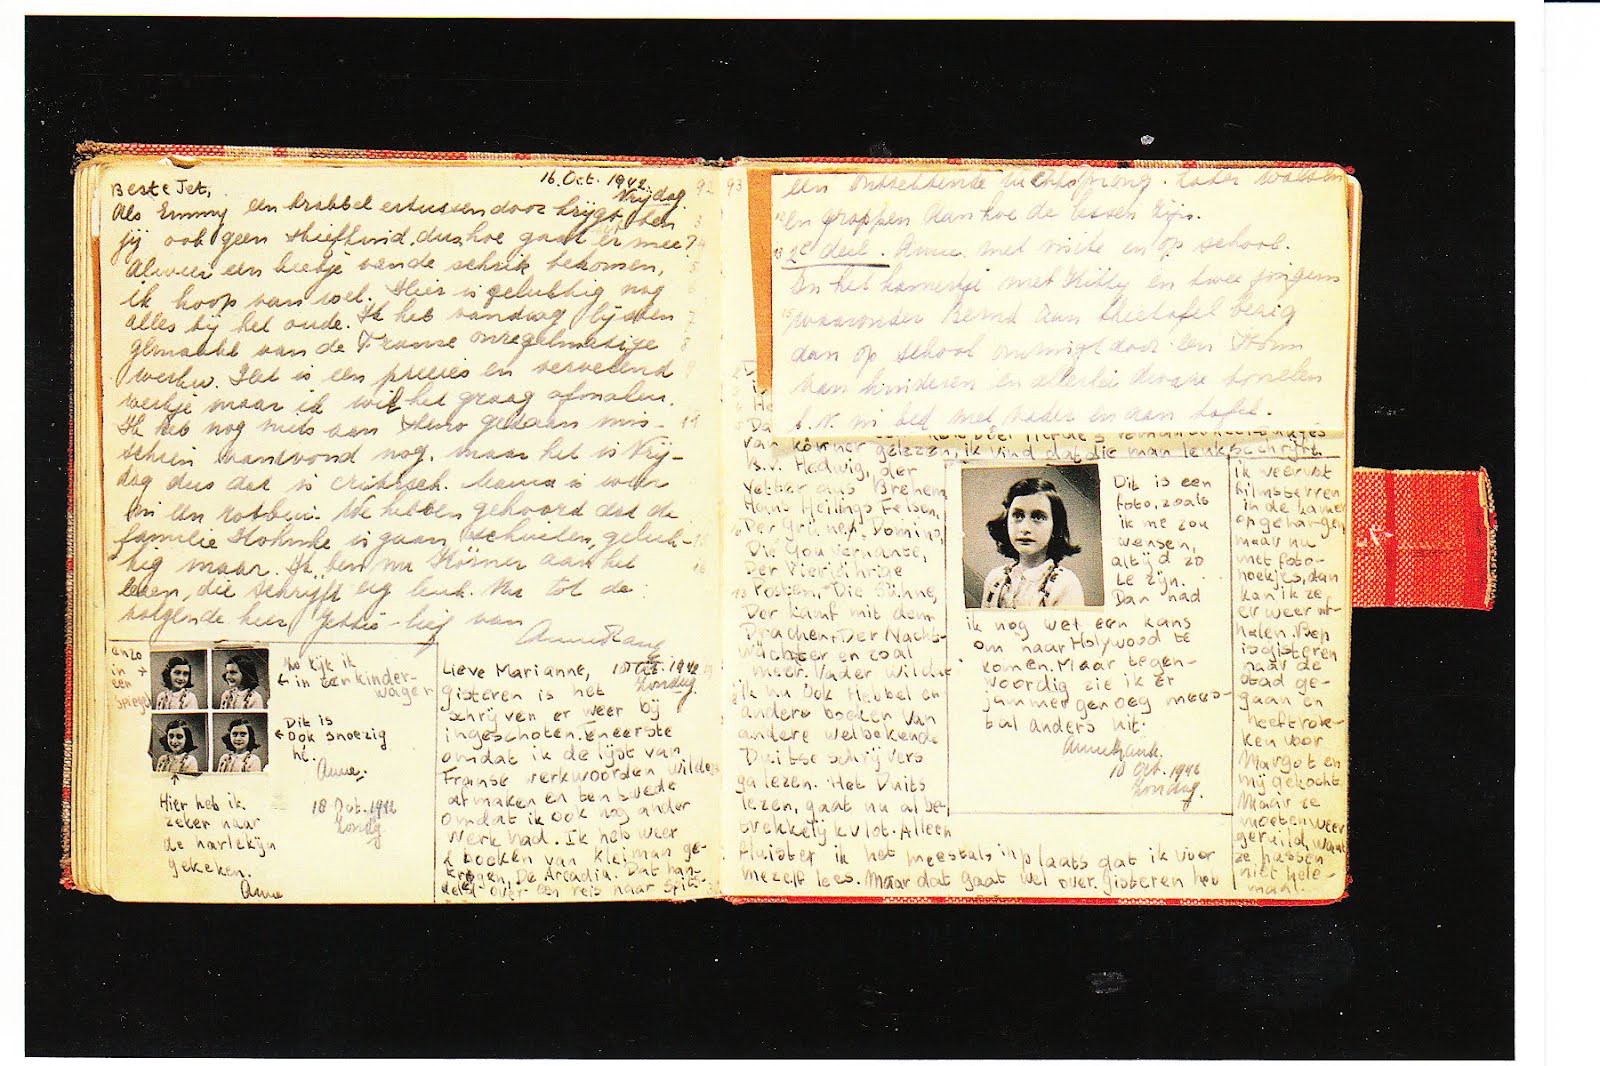 16. Oct. 1942.
Vrijdag.
Beste Jet,
Als Emmy een krabbel ertussendoor krijgt, ben
jij ook geen stiefkind, dus hoe gaat er mee?
Alweer een beetje van de schrik bekomen,
ik hoop van wel. Hier is gelukkig nog
alles bij het oude. Ik heb vandaag lijsten
gemaakt van de Franse onregelmatige
werkw. Het is een precies en vervelend
werkje maar ik wil het graag afmaken.
Ik heb nog niets aan steno gedaan mis-
schien vanavond nog, maar het is Vrij-
dag dus dat is critisch. Mama is weer
in een rotbui. We hebben gehoord dat de
familie is gaan schuilen, geluk-
kig maar. Ik ben nu Körner aan het
lezen, die schrijft erg leuk. Nu tot de
volgende keer Jettie-lief van
Anne Frank
enzo
in
een
spiegel
Zo kijk ik
in een kinder-
wagen
Dit is
Ook snoezig
hé.
Anne.
Hier heb ik
zeker naar
de harlekijn
gekeken.
Anne
18 Oct. 1942
Zondag
Lieve Marianne,
Oct. 1942
Zondag
Gisteren is het
schrijven er weer bij
ingeschoten. Eneerste
omdat ik de lijst van
Franse werkwoorden wilde
afmaken en ten twede
omdat ik ook nog ander
werk had. Ik heb weer
2 boeken van Kleiman ge-
kregen, De Arcadia. Dat han-
delt over een reis naar Spit-
92 93
een ontzettende luchtsprong. Later walsen
en grappen dan hoe de lessen zijn.
2e deel. Anne met visite en op school.
In het kamertje met Kitty en twee jongens
waaronder Bernd aan theetafel bezig
dan op school omringd door een
van kinderen en allerlei dwaze tonelen
b.v. in bed met vader en aan tafel.
van Körner gelezen, ik vind dat die man leuk schrijft.
B.v. Hedwig, der
Vetter aus Brehem
Hans Heilings Felsen,
Der Grüne Domino,
Die Gouvernante,
Der Vierjährige
Posten, Die Sühne,
Der Kamf mit dem
Drachen, Der Nacht-
wächter en zoal
meer. Vader wil dat
ik nu ook Hebbel en
andere boeken van
andere welbekende
Duitse schrijvers
ga lezen. Het Duits
lezen, gaat nu al be-
trekkelijk vlot. Alleen
fluister ik het meestal, in plaats dat ik voor
mezelf lees. Maar dat gaat wel over. Gisteren heb
Dit is een
foto, zoals
ik me zou
wensen,
altijd zo
te zijn.
Dan had
ik nog wel een kans
om naar Holywood te
komen. Maar tegen-
woordig zie ik er
jammer genoeg mees-
tal anders uit.
Anne Frank.
10 Oct. 1942
Zondag.
ik weer wat
filmsterren
in de kamer
opgehangen,
maar nu
met foto-
hoekjes, dan
kan ik ze
er weer af-
halen. Bep
is gisteren
naar de
stad ge-
gaan en
heeft rok-
ken voor
Margot en
mij gekocht.
Maar ze
moeten weer
geruild, want
ze passen
niet hele-
maal.